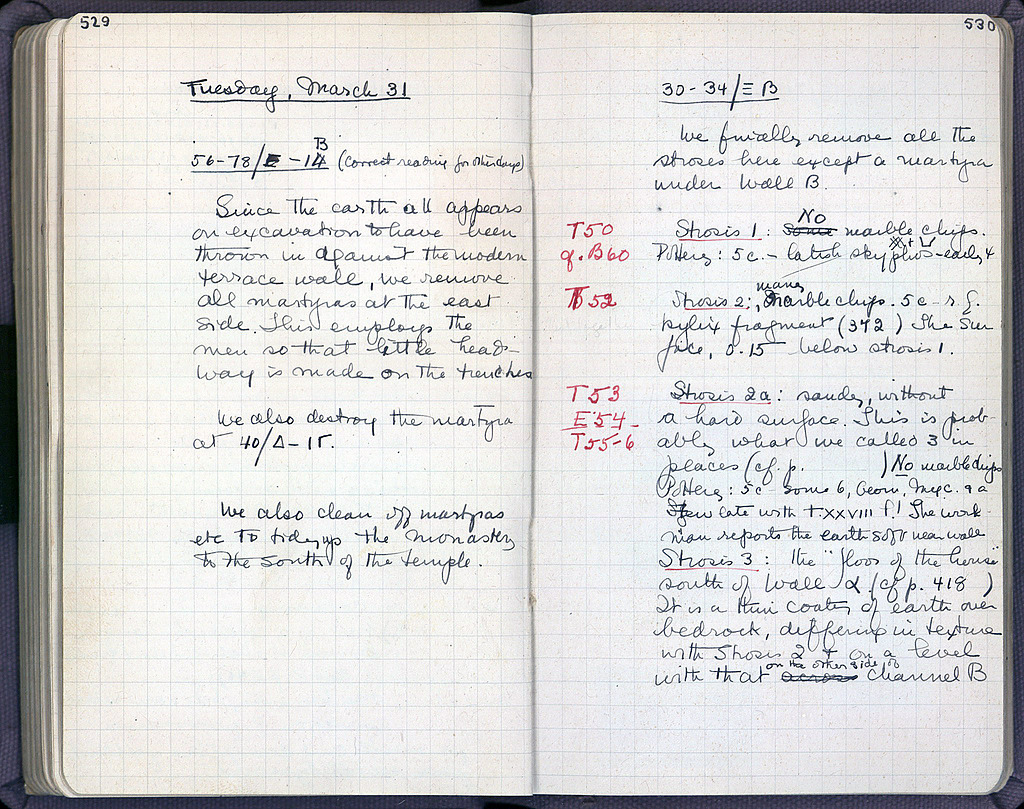 529
Tuesday, March 31
B
56-78/Ξ -14 (Correct reading for other days)
Since the earth all appears
on excavation to have been
thrown in against the modern
terrace wall, we remove
all martyras at the east
side. This employs the
men so that little head-
way is made on the trenches
We also destroy the martyra
at 40/Δ-ΙΓ.
We also clean off martyras
etc to tidy up the monastery
to the south of the temple.
530
30-34/Ξ B
We finally remove all the
stroses here except a martyra
under Wall B.
No
T50 Strosis 1: Some marble chips.
cf. B60 Pottery: 5c. - latish skyphos - early 4
many
T52 Strosis 2: marble chips. 5c - r.f.
kylix fragment (342) The sur
face, 0.15 below strosis 1.
T53 Strosis 2a: sandy, without
E54- a hard surface. This is prob-
T55-6 ably what we called 3 in
places (cf. p. ) No marble chips
Pottery: 5c - some 6, Geom, Myc. & a
few late with TXXVIII f.! The work
man reports the earth soft near wall
Strosis 3: the "floor of the house"
south of Wall α (cf p. 418 )
It is a thin coating of earth over
bedrock, differing in texture
with Strosis 2 + on a level
on the other side of
with that across channel B